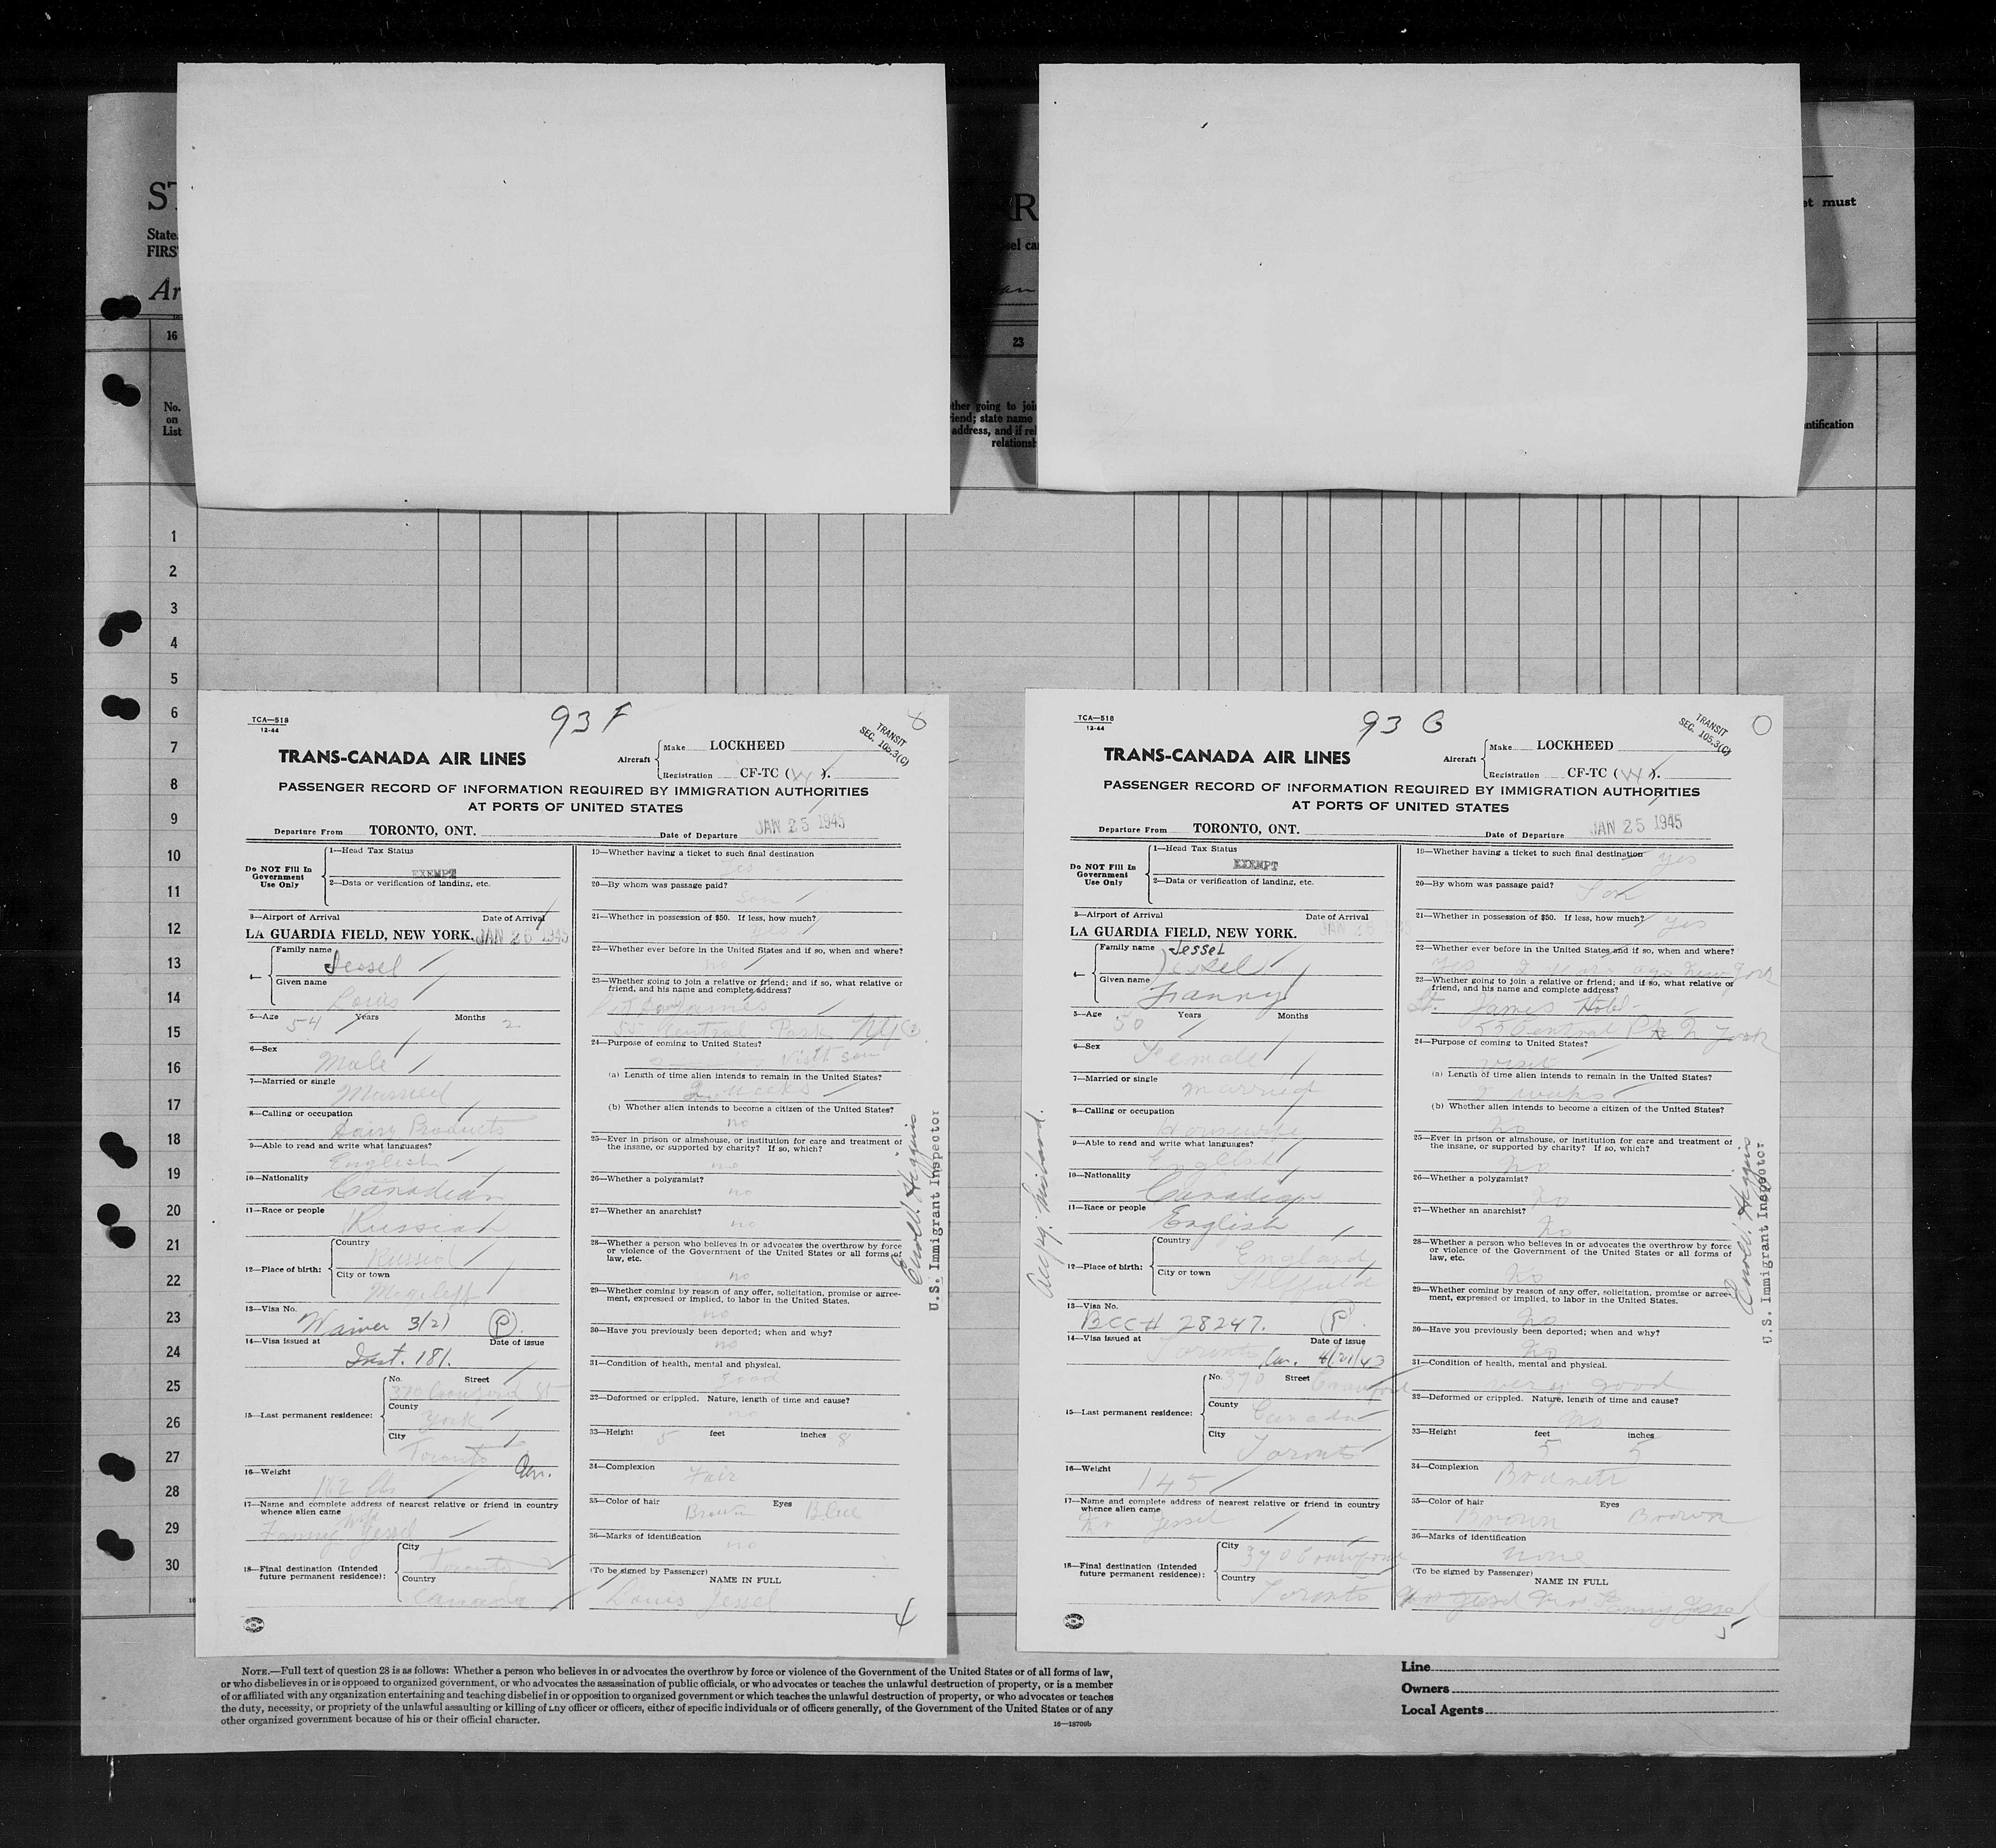 ST
State
FIRS
Ar
16
No.
on
List
RR
sel ca
an
23
ther going to joi
iend; state name
address, and if rel
relations
et must
ntification
1
2
3
4
5
6
7
8
9
10
11
12
13
14
15
16
17
18
19
20
21
22
23
24
25
26
27
28
29
30
TCA—518
12-44
93 F
8
TRANSIT
SEC. 105.3(C)
TRANS-CANADA AIR LINES
Aircraft
Make LOCKHEED
Registration CF-TC (W).
PASSENGER RECORD OF INFORMATION REQUIRED BY IMMIGRATION AUTHORITIES
AT PORTS OF UNITED STATES
Departure From TORONTO, ONT. Date of Departure JAN 25 1945
Do NOT Fill In
Government
Use Only
1—Head Tax Status
EXEMPT
2—Data or verification of landing, etc.
3—Airport of Arrival Date of Arrival
LA GUARDIA FIELD, NEW YORK. JAN 26 1945
4—
Family name
Jessel
Given name
Louis
5—Age 54 Years Months 2
6—Sex
Male
7—Married or single
Married
8—Calling or occupation
Dairy Products
9—Able to read and write what languages?
English
10—Nationality
Canadian
11—Race or people
Russian
12—Place of birth:
Country
Russia
City or town
Mogileff
13—Visa No.
Waiver 3(2) P
14—Visa issued at Date of issue
Inst. 181.
15—Last permanent residence:
No. Street
370 Crawford St
County
York
City
Toronto Can.
16—Weight
162 lbs
17—Name and complete address of nearest relative or friend in country
whence alien came
wife
Fanny Jessel
18—Final destination (Intended
future permanent residence):
City
Toronto
Country
Canada
19—Whether having a ticket to such final destination
Yes
20—By whom was passage paid?
Son
21—Whether in possession of $50. If less, how much?
Yes
22—Whether ever before in the United States and if so, when and where?
no
23—Whether going to join a relative or friend; and if so, what relative or
friend, and his name and complete address?
55 Central Park NYC
24—Purpose of coming to United States?
Visit son
(a) Length of time alien intends to remain in the United States?
2 weeks
(b) Whether alien intends to become a citizen of the United States?
no
25—Ever in prison or almshouse, or institution for care and treatment of
the insane, or supported by charity? If so, which?
no
26—Whether a polygamist?
no
27—Whether an anarchist?
no
28—Whether a person who believes in or advocates the overthrow by force
or violence of the Government of the United States or all forms of
law, etc.
no
29—Whether coming by reason of any offer, solicitation, promise or agree-
ment, expressed or implied, to labor in the United States.
no
30—Have you previously been deported; when and why?
no
31—Condition of health, mental and physical.
good
32—Deformed or crippled. Nature, length of time and cause?
no
33—Height 5 feet inches 8
34—Complexion
Fair
35—Color of hair Eyes
Brown Blue
36—Marks of identification
no
(To be signed by Passenger)
NAME IN FULL
Louis Jessel
4
U.S. Immigrant Inspector
TCA—518
12-44
93 G
TRANSIT
SEC. 105.3(C)
TRANS-CANADA AIR LINES
Aircraft
Make LOCKHEED
Registration CF-TC (W).
PASSENGER RECORD OF INFORMATION REQUIRED BY IMMIGRATION AUTHORITIES
AT PORTS OF UNITED STATES
Departure From TORONTO, ONT. Date of Departure JAN 25 1945
Do NOT Fill In
Government
Use Only
1—Head Tax Status
EXEMPT
2—Data or verification of landing, etc.
3—Airport of Arrival Date of Arrival
LA GUARDIA FIELD, NEW YORK.
4—
Family name Jessel
Jessel
Given name
Fanny
5—Age 50 Years Months
6—Sex
Female
7—Married or single
married
8—Calling or occupation
Housewife
9—Able to read and write what languages?
English
10—Nationality
Canadian
11—Race or people
English
12—Place of birth:
Country
England
City or town
Sheffield
13—Visa No.
BCCH 28247. P
14—Visa issued at Date of issue
Toronto, Can. 4/21/43
15—Last permanent residence:
No. 370 Street Crawford
County
Canada
City
Toronto
16—Weight
145
17—Name and complete address of nearest relative or friend in country
whence alien came
Jessel
18—Final destination (Intended
future permanent residence):
City
370 Crawford
Country
Toronto
19—Whether having a ticket to such final destination Yes
20—By whom was passage paid?
Son
21—Whether in possession of $50. If less, how much? Yes
22—Whether ever before in the United States and if so, when and where?
Yes 2 years ago New York
23—Whether going to join a relative or friend; and if so, what relative or
friend, and his name and complete address?
St. James Hotel
55 Central Pk N York
24—Purpose of coming to United States?
visit
(a) Length of time alien intends to remain in the United States?
2 weeks
(b) Whether alien intends to become a citizen of the United States?
No
25—Ever in prison or almshouse, or institution for care and treatment of
the insane, or supported by charity? If so, which?
No
26—Whether a polygamist?
No
27—Whether an anarchist?
No
28—Whether a person who believes in or advocates the overthrow by force
or violence of the Government of the United States or all forms of
law, etc.
No
29—Whether coming by reason of any offer, solicitation, promise or agree-
ment, expressed or implied, to labor in the United States.
No
30—Have you previously been deported; when and why?
No
31—Condition of health, mental and physical.
very good
32—Deformed or crippled. Nature, length of time and cause?
No
33—Height feet inches
5 5
34—Complexion
Brunette
35—Color of hair Eyes
Brown Brown
36—Marks of identification
none
(To be signed by Passenger)
NAME IN FULL
Mrs Fanny Jessel
5
Accpg. husband.
U.S. Immigrant Inspector
NOTE.—Full text of question 28 is as follows: Whether a person who believes in or advocates the overthrow by force or violence of the Government of the United States or of all forms of law,
or who disbelieves in or is opposed to organized government, or who advocates the assassination of public officials, or who advocates or teaches the unlawful destruction of property, or is a member
of or affiliated with any organization entertaining and teaching disbelief in or opposition to organized government or which teaches the unlawful destruction of property, or who advocates or teaches
the duty, necessity, or propriety of the unlawful assaulting or killing of any officer or officers, either of specific individuals or of officers generally, of the Government of the United States or of any
other organized government because of his or their official character.
16—18709b
Line
Owners
Local Agents